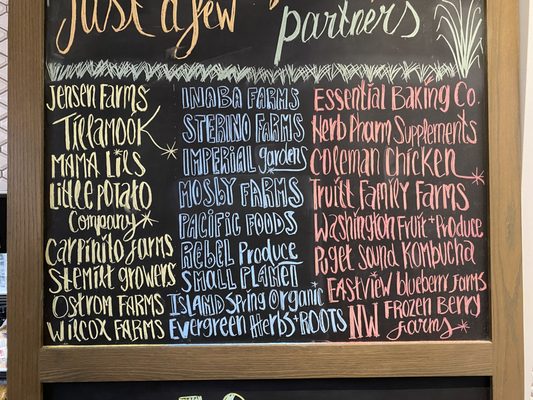 Just a few
partners
Jensen Farms
Tillamook
MAMA Lil's
Little Potato
Company
Carpinito farms
Stemilt growers
Ostrom FARMS
Wilcox FARMS
INABA FARMS
STERINO FARMS
IMPERIAL gardens
MOSBY FARMS
PACIFIC FOODS
REBEL Produce
SMALL PLANET
ISLAND Spring Organic
Evergreen Herbs + ROOTS
Essential Baking Co.
Herb Pharm Supplements
Coleman Chicken
Truitt Family Farms
Washington Fruit + Produce
Puget Sound Kombucha
EASTVIEW blueberry farms
NW Frozen Berry
farms